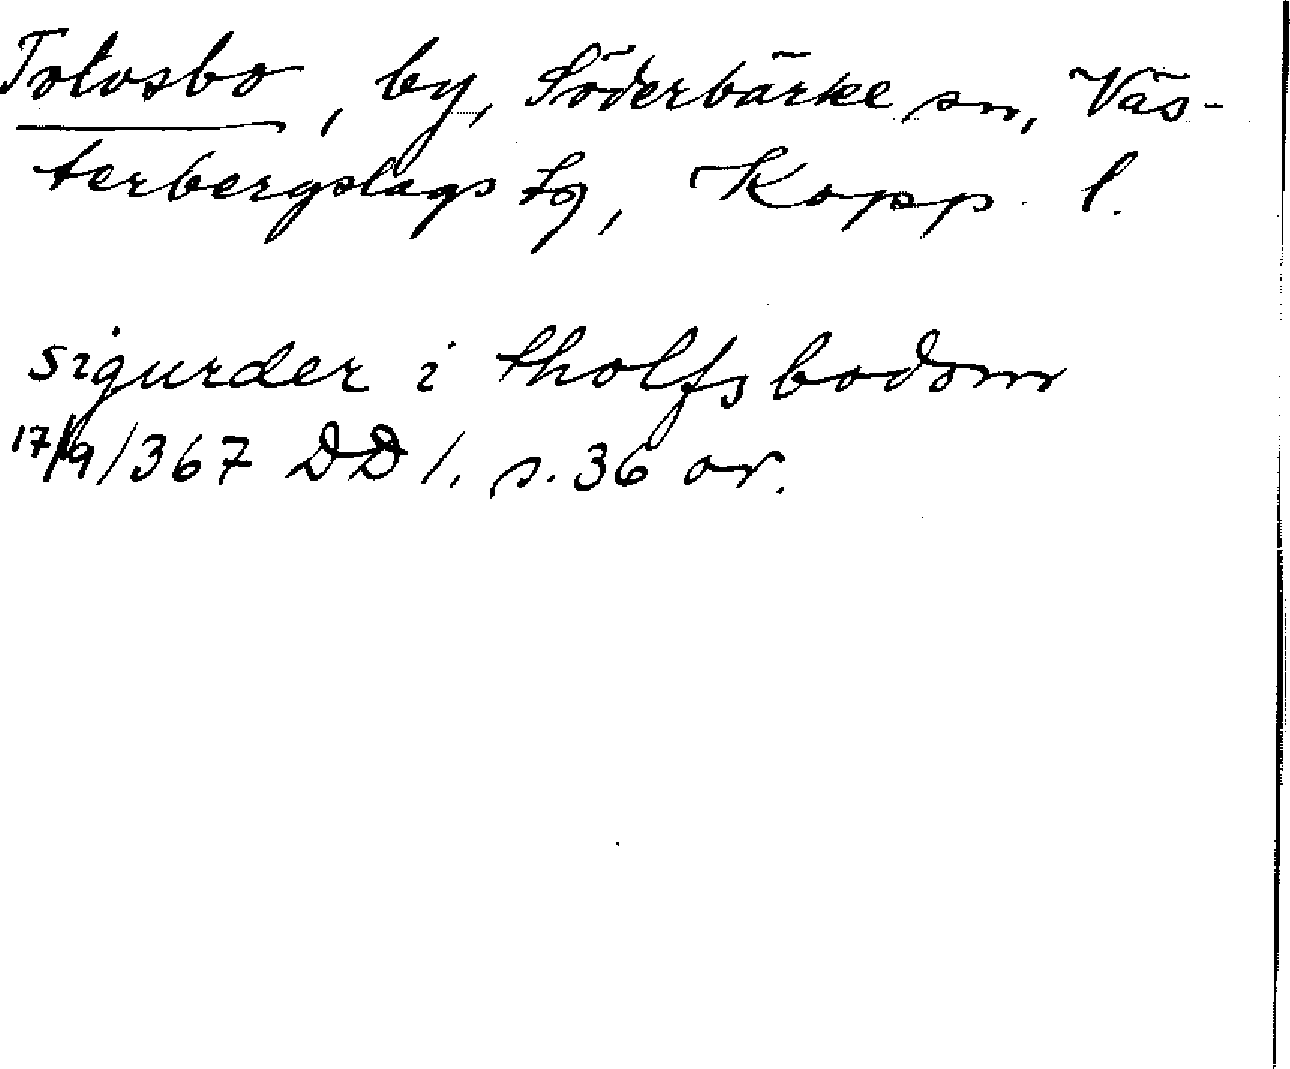 Tolvsbo, by, Söderbärke sn, Väs-
terbergslags tg, Kopp. l.
sigurder i tholfsbodom
17/9 1367 DD 1. s. 36 or.